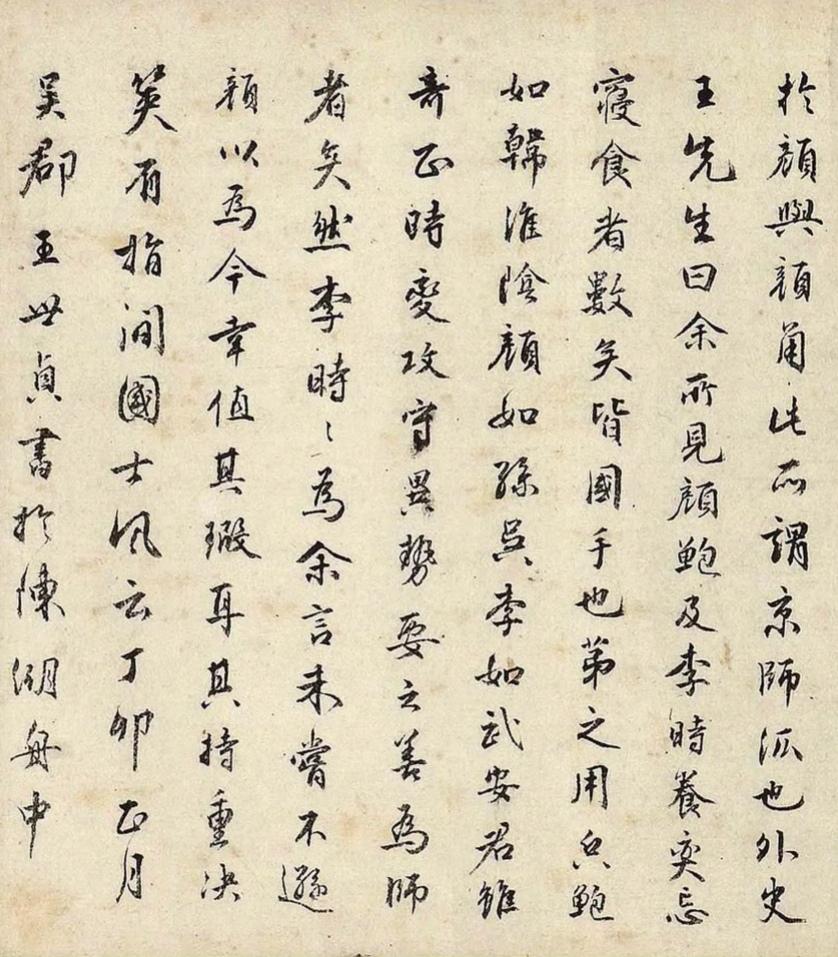 於顔與顔角此所謂京師派也外史
王先生曰余所見顔鮑及李時養奕忘
寢食者數矣皆國手也第之用兵鮑
如韓淮陰顔如孫吳李如武安君雖
奇正時變攻守異勢要之善為師
者矣然李時〻為余言未嘗不遜
顔以為今幸值其瑕耳其持重決
筴有指間國士風云丁卯正月
吴郡王世貞書於陳湖舟中